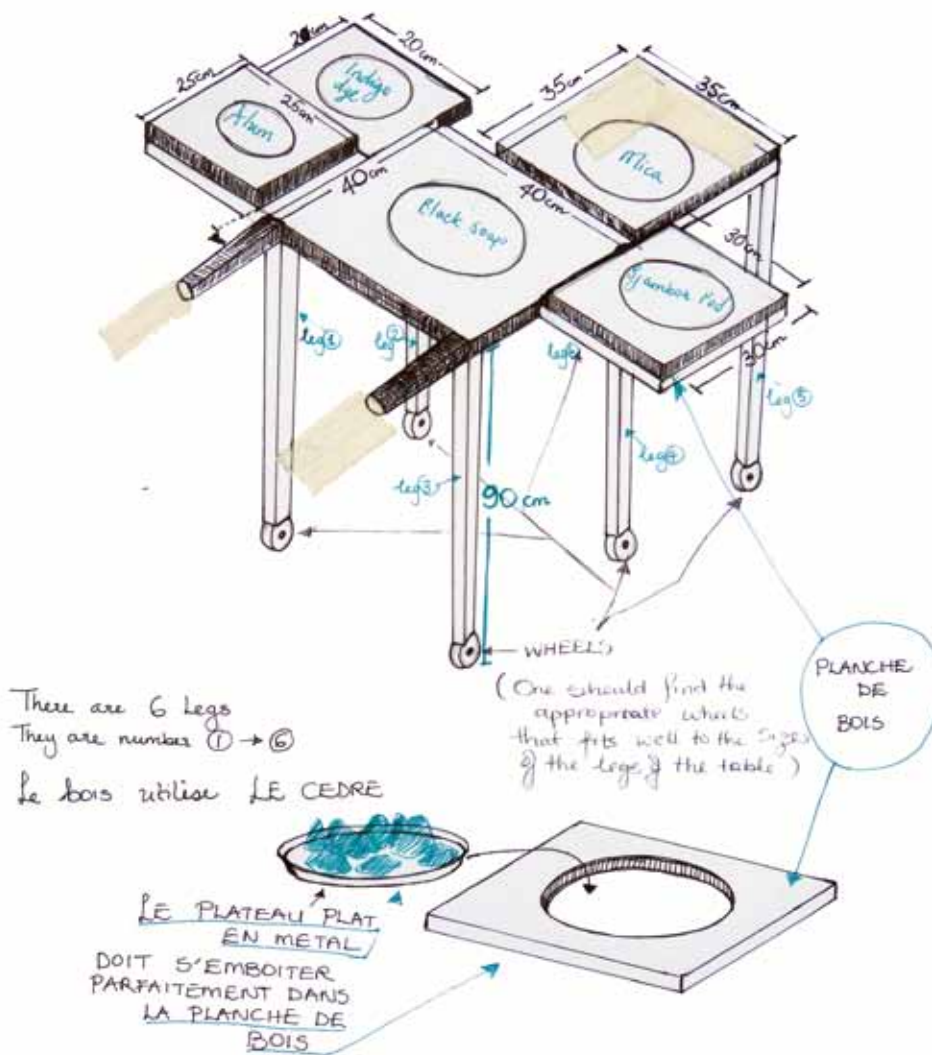 20cm
20cm
25cm
25cm
Indigo
dye
Alum
35cm
35cm
Mica
40cm
40cm
Black soap
30cm
30cm
leg①
leg②
leg
leg⑤
leg3
leg④
90cm
WHEELS
(One should find the
appropriate wheels
that fits well to the sizes
of the legs of the table)
PLANCHE
DE
BOIS
There are 6 Legs
They are number ① → ⑥
Le bois utilise LE CEDRE
LE PLATEAU PLAT
EN METAL
DOIT S'EMBOITER
PARFAITEMENT DANS
LA PLANCHE DE
BOIS